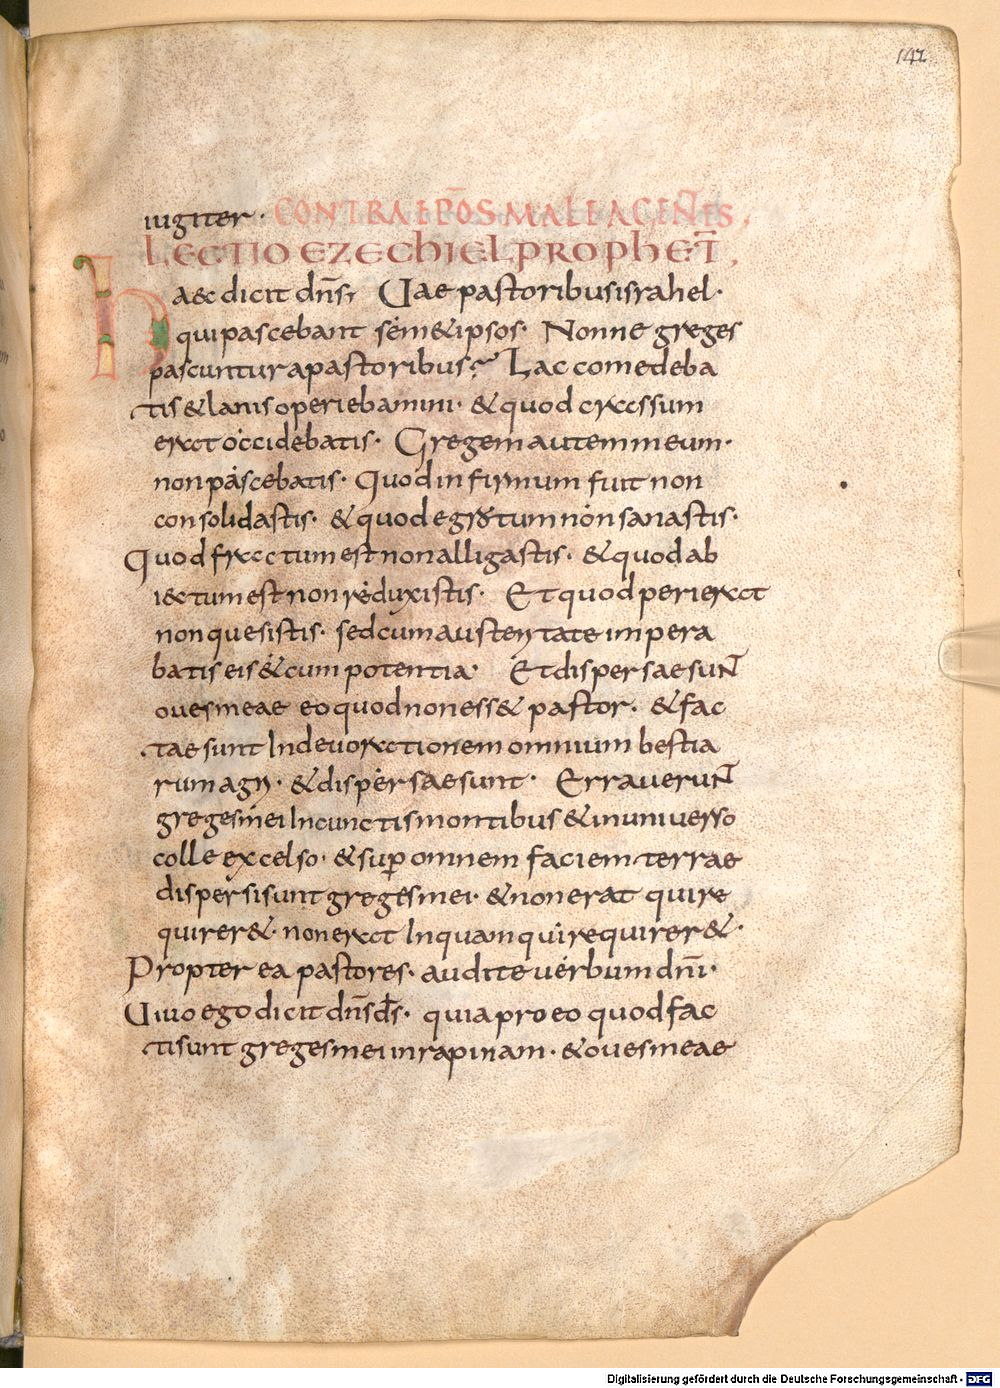 142
iugiter · CONTRA EP̄OS MALE AGEN̄TS,
LECTIO EZECHIEL PROPHET̄I,
Haec dicit dn̄s, Uae pastoribus israhel·
qui pascebant sem&ipsos· Nonne greges
pascuntur a pastoribus? Lac comedeba
tis & lanis operiebamini· & quod crassum
erat occidebatis· Gregem autem meum·
non pascebatis· Quod infirmum fuit non
consolidastis· & quod egrotum non sanastis·
Quod fractum est non alligastis· & quod ab
iectum est non reduxistis· Et quod perierat
non quesistis· sed cum austeritate impera
batis eis & cum potentia· Et dispersae sunt
oues meae eo quod non ess& pastor· & fac
tae sunt In deuorationem omnium bestia
rum agri· & dispersae sunt· Errauerunt
greges mei In cunctis montibus & in uniuerso
colle excelso· & sup omnem faciem terrae
dispersi sunt greges mei· & non erat qui re
quirer&· non erat Inquam qui requirer&·
Propterea pastores· audite uerbum dn̄i·
Uiuo ego dicit dn̄s ds̄· quia pro eo quod fac
ti sunt greges mei in rapinam· & oues meae
Digitalisierung gefördert durch die Deutsche Forschungsgemeinschaft - DFG